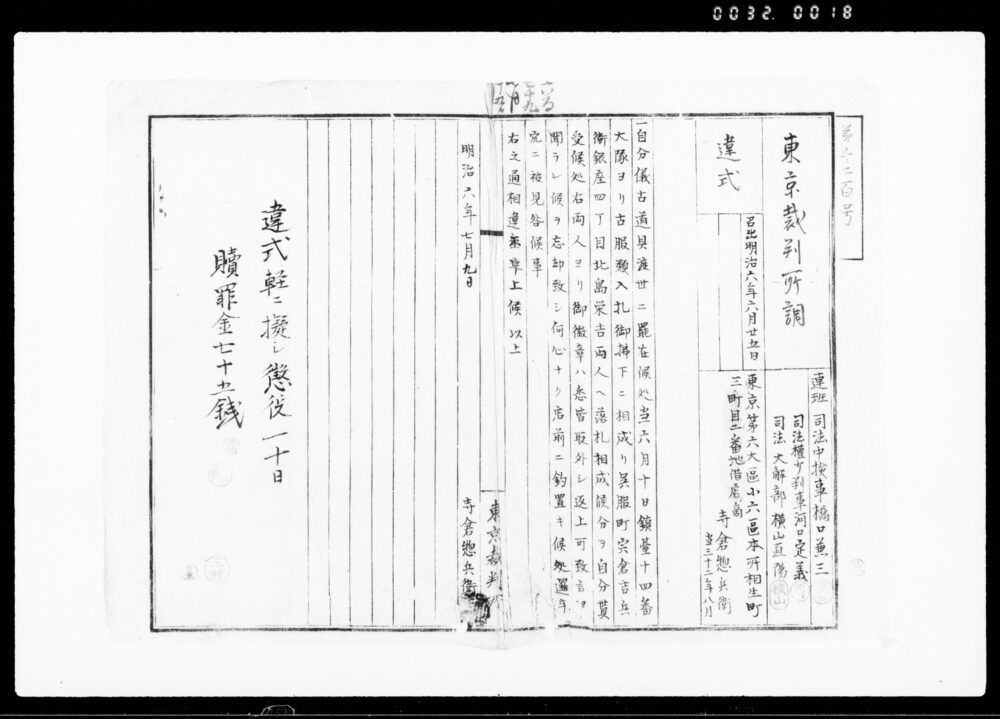 0032. 0018
東京裁判所調
違式
召出明治六年六月廿五日
連班 司法中検事橋口兼三
司法権少判事河口定義
司法大解部 横山直陽
東京第六大區小六區本所相生町
三町目二番地借店
寺倉惣兵衛
当三十二年八月
一自分儀古道具渡世ニ罷在候処当六月十日鎮臺十四番
大隊ヨリ古服類入札御拂下ニ相成リ呉服町宍倉吉兵
衛銀座四丁目北島栄吉両人ヘ落札相成候分ヲ自分買
受候処右両人ヨリ御徽章ハ悉皆取外シ返上可致旨
聞ラレ候ヲ忘却致シ何心ナク店前ニ釣置キ候処邏卒
ニ被見咎候事
右之通相違無事上候以上
明治六年七月九日
寺倉惣兵衛
東京裁判
違式軽ニ擬シ懲役一十日
贖罪金七十五銭